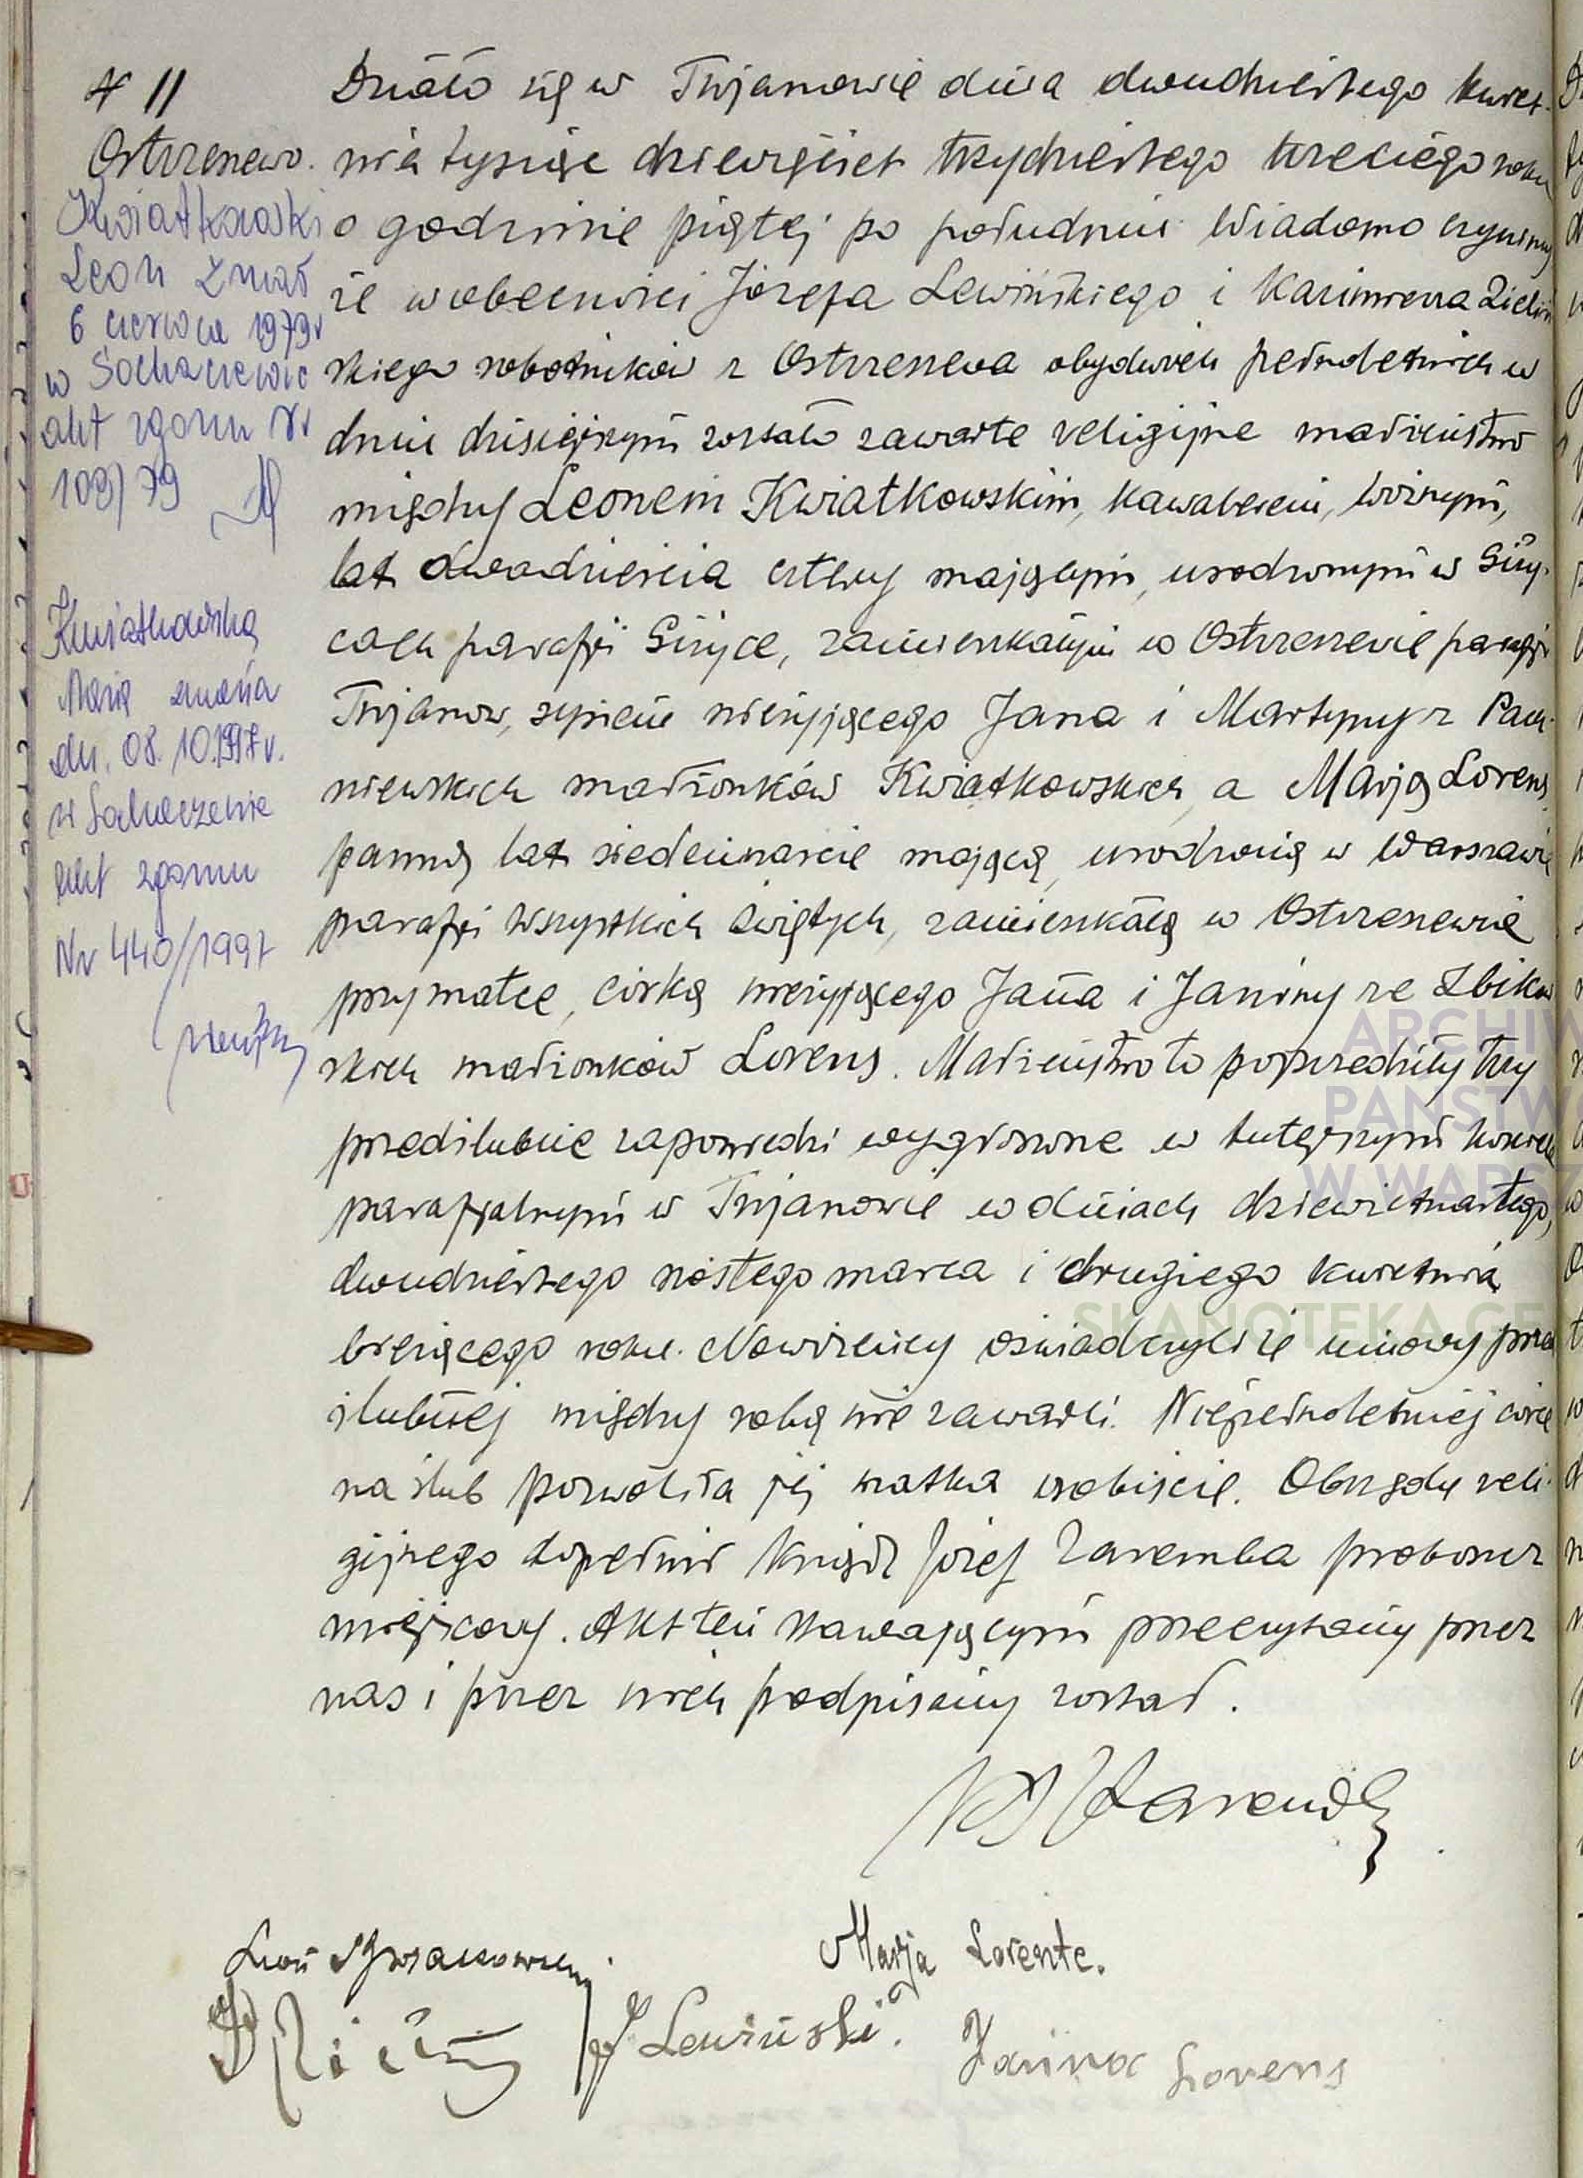 N 11
Ostrzeszewo.
Kwiatkowski
Leon zmarł
6 czerwca 1979 r
w Sochaczewie
akt zgonu Nr
109/79
Kwiatkowska
Maria zmarła
dn. 08.10.1997 r.
w Sochaczewie
akt zgonu
Nr 440/1997
Działo się w Trojanowie dnia dwudziestego kwiet-
nia tysiąc dziewięćset trzydziestego trzeciego roku
o godzinie piątej po południu. Wiadomo czynimy
że w obecności Józefa Lewińskiego i Kazimierza Zieliń
skiego robotników z obydwóch pełnoletnich w
dniu dzisiejszym zostało zawarte religijne małżeństwo
między Leonem Kwiatkowskim, kawalerem,
lat dwadzieścia cztery mającym, urodzonym w Giży-
cach parafji Giżyce, zamieszkałym w parafji
Trojanow, synem nieżyjącego Jana i Martyny z
niewskich małżonków Kwiatkowskich, a Marją Lorens,
panną lat siedemnaście mającą, urodzoną w Warszawie
parafji Wszystkich Świętych, zamieszkałą w
przy matce, córką nieżyjącego Jana i Janiny ze Zbikow
skich małżonków Lorens. Małżeństwo to poprzedziły trzy
przedślubne zapowiedzi wygłoszone w tutejszym kościele
parafjalnym w Trojanowie w dniach dziewietnastego,
dwudziestego szóstego marca i drugiego kwietnia
bieżącego roku. Nowożeńcy oświadczyli że umowy przed
ślubnej między sobą nie zawarli. Niepełnoletniej córce
na ślub pozwoliła jej matka osobiście. Obrzędu reli-
gijnego dopełnił Ksiądz Józef Zaremba proboszcz
miejscowy. Akt ten stawającym przeczytany przez
nas i przez nich podpisany został.
Zaremba
Leon Kwiatkowski
Marja Lorente.
J Lewiński.
Janina Lorens
ARCHIW
PAŃSTWO
W WARSZ
SKANOTEKA.GE